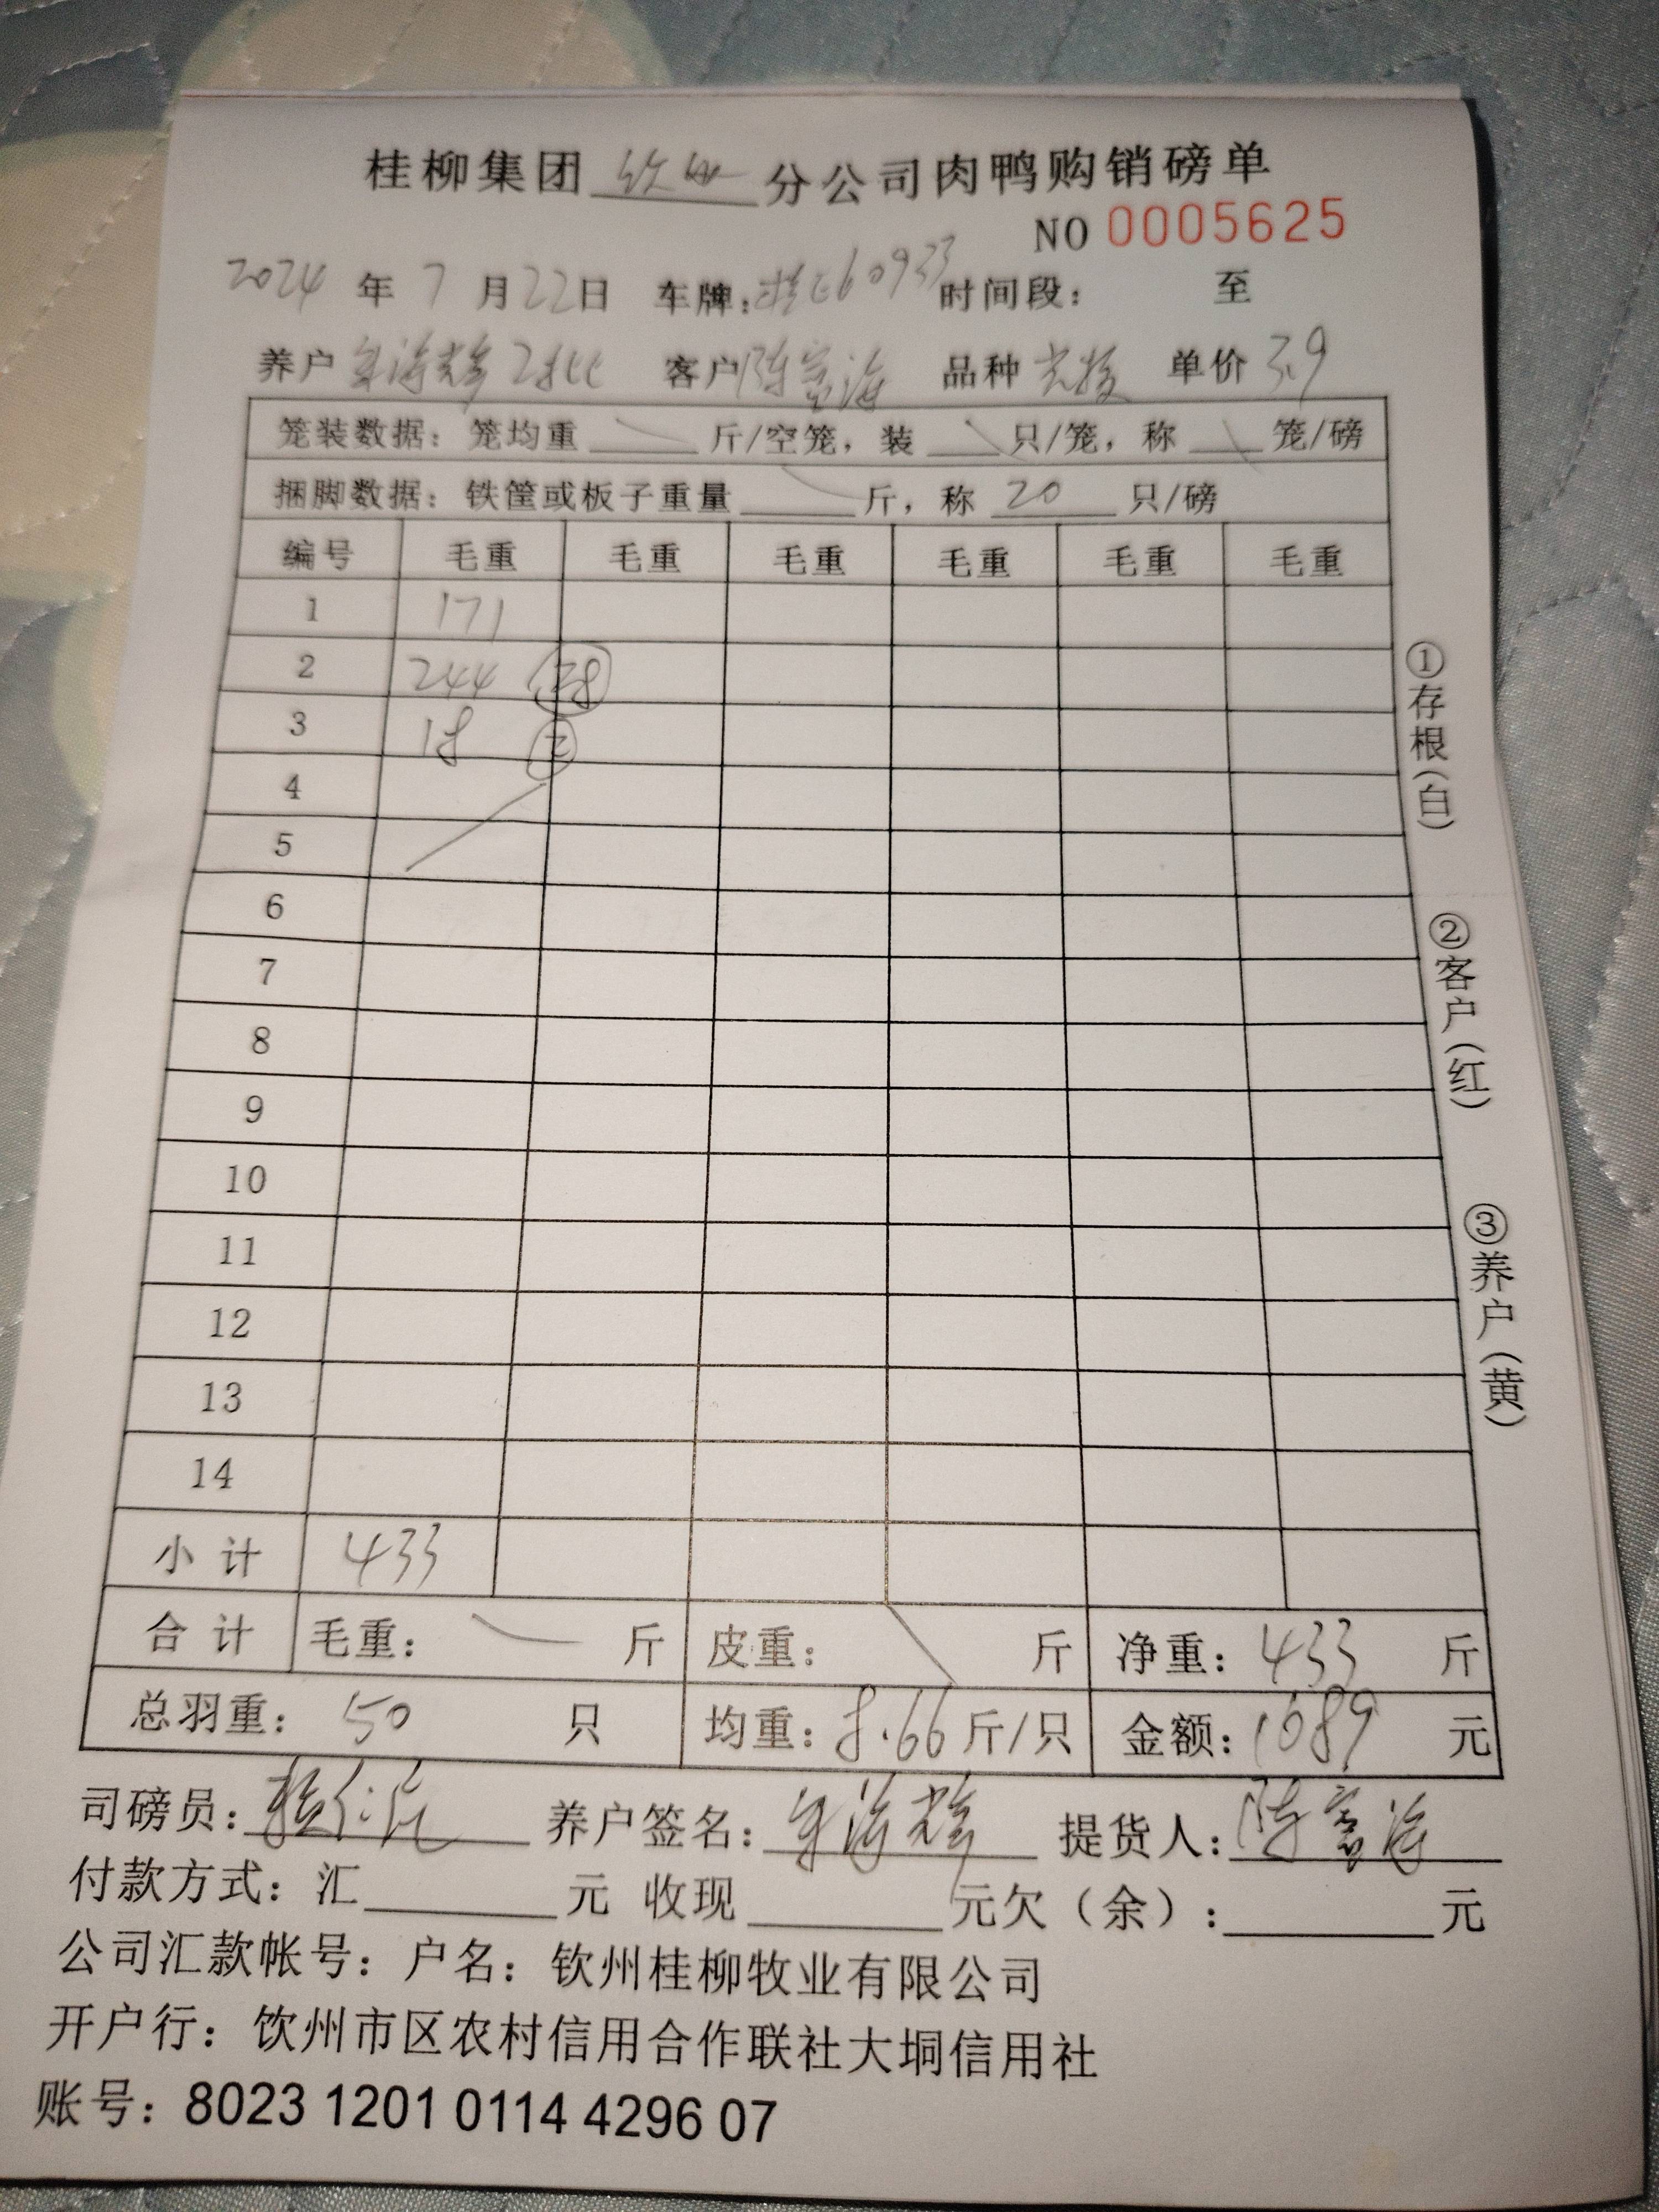 桂柳集团 钦州 分公司肉鸭购销磅单
NO 0005625
2024 年 7 月 22 日 车牌: 桂E60933 时间段: 至
养户 客户 陈富海 品种 单价 3.9
笼装数据: 笼均重 斤/空笼, 装 只/笼, 称 笼/磅
捆脚数据: 铁筐或板子重量 斤, 称 20 只/磅
编号 毛重 毛重 毛重 毛重 毛重 毛重
1 171
2 244
3 18 2
4
5
6
7
8
9
10
11
12
13
14
小计 433
合计 毛重: 斤 皮重: 斤 净重: 433 斤
总羽重: 50 只 均重: 8.66 斤/只 金额: 1689 元
司磅员: 养户签名: 提货人: 陈富海
付款方式: 汇 元 收现 元欠（余）: 元
公司汇款帐号: 户名: 钦州桂柳牧业有限公司
开户行: 饮州市区农村信用合作联社大垌信用社
账号: 8023 1201 0114 4296 07
①存根(白)
②客户(红)
③养户(黄)